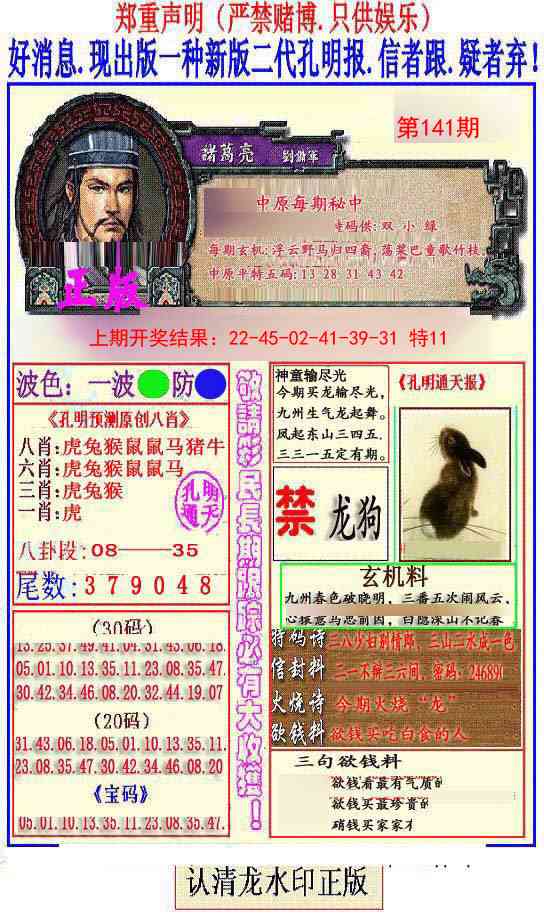 郑重声明（严禁赌博.只供娱乐）
好消息.现出版一种新版二代孔明报.信者跟.疑者弃!
第141期
諸葛亮 劉備軍
中原每期秘中
码供:双 小 绿
每期玄机:浮云野马归四裔,荡桨巴童歌竹枝.
中原平特五码:13 28 31 43 42
正版
上期开奖结果：22-45-02-41-39-31 特11
波色：一波 防
《孔明预测原创八肖》
八肖:虎兔猴鼠鼠马猪牛
六肖:虎兔猴鼠鼠马
三肖:虎兔猴
一肖:虎
孔明
通天
八卦段:08——35
尾数:379048
(30码)
13.25.37.49.41.04.31.43.06.18.
05.01.10.13.35.11.23.08.35.47.
30.42.34.46.08.20.32.44.19.07
(20码)
31.43.06.18.05.01.10.13.35.11.
23.08.35.47.30.42.34.46.08.20
《宝码》
05.01.10.13.35.11.23.08.35.47.
敬請彩民長期跟踪必有大收獲！
神童输尽光
今期买龙输尽光,
九州生气龙起舞。
凤起东山三四五.
三三一五定有期。
《孔明通天报》
禁 龙狗
玄机料
九州春色破晓明，三番五次闹风云，
特码诗 三八少妇别情郎，三山二水成一色
信封料 二一不辩三六间，密码：24689
火烧诗 今期火烧“龙”
欲钱料 欲钱买吃白食的人
三句欲钱料
欲钱看最有气质的
欲钱买最珍贵的
硝钱买家家
认清龙水印正版